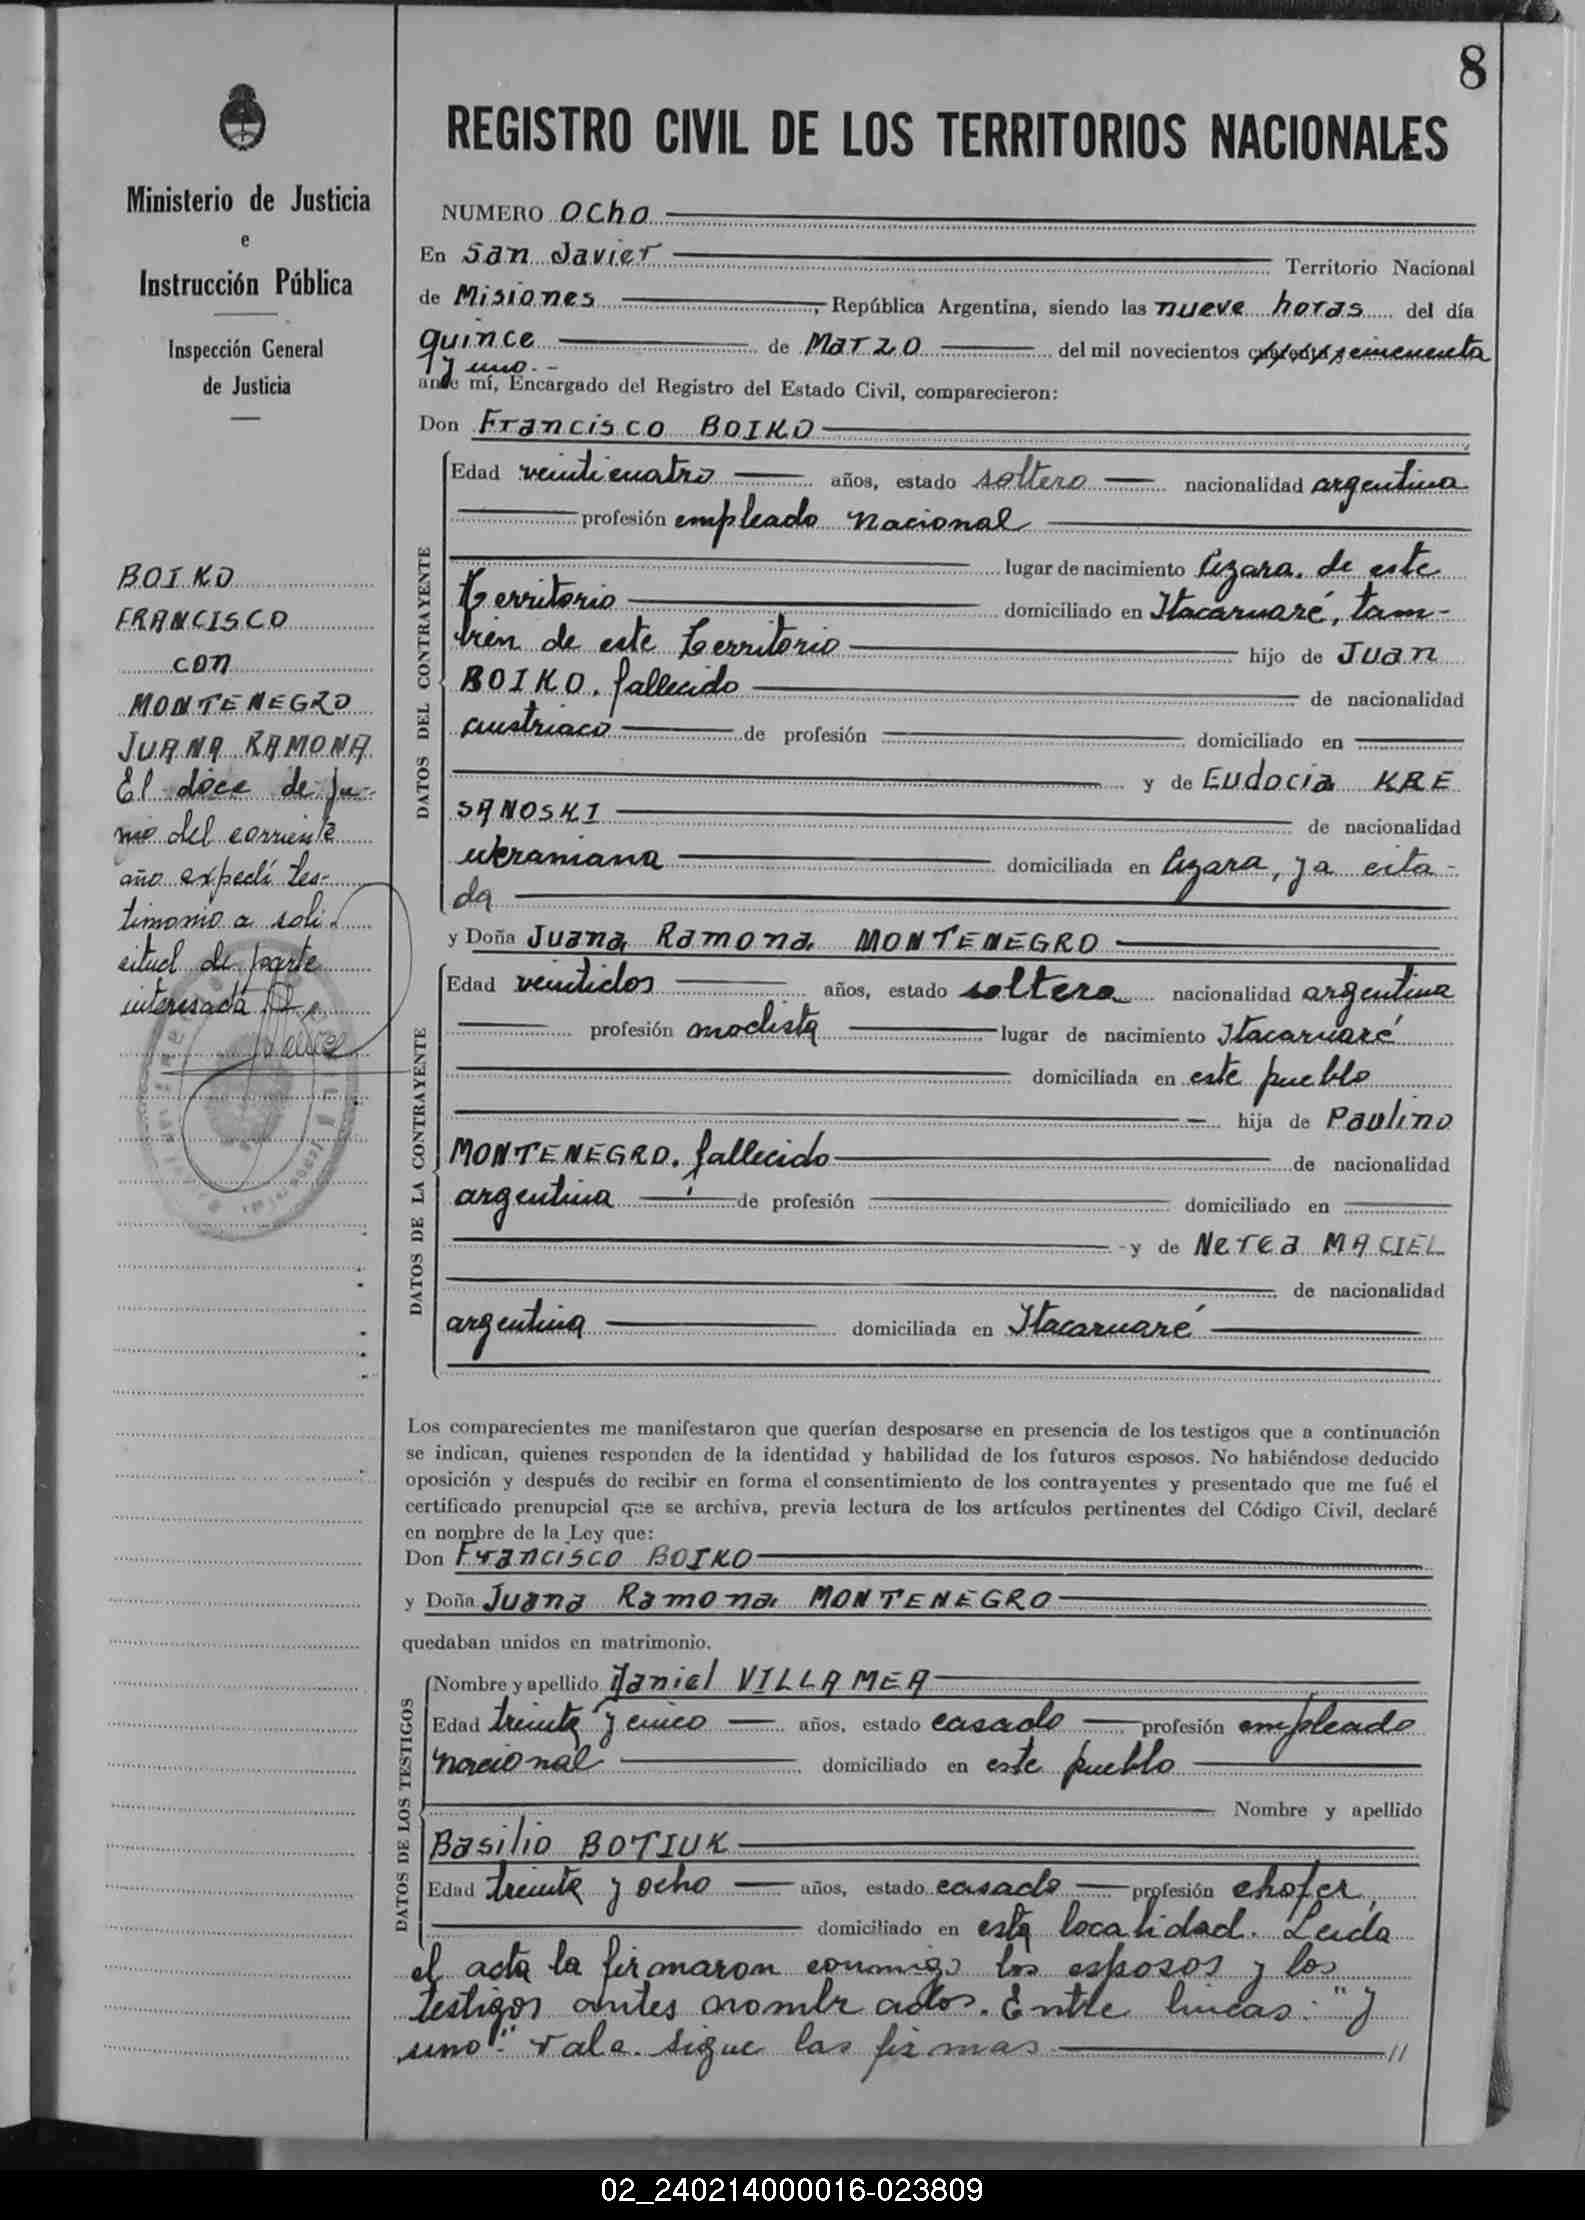 8
REGISTRO CIVIL DE LOS TERRITORIOS NACIONALES
Ministerio de Justicia
e
Instrucción Pública
Inspección General
de Justicia
BOIKO
FRANCISCO
con
MONTENEGRO
JUANA RAMONA
El doce de ju-
nio del corriente
año expedí tes-
timonio a soli-
citud de parte
interesada
NUMERO Ocho
En San Javier Territorio Nacional
de Misiones, República Argentina, siendo las nueve horas del día
quince de Marzo del mil novecientos cincuenta
y uno.-
ante mí, Encargado del Registro del Estado Civil, comparecieron:
Don Francisco BOIKO
DATOS DEL CONTRAYENTE
Edad veinticuatro años, estado soltero nacionalidad argentina
profesión empleado Nacional
lugar de nacimiento Azara, de este
Territorio domiciliado en Itacaruaré, tam-
bién de este Territorio hijo de Juan
BOIKO, fallecido de nacionalidad
austriaco de profesión domiciliado en
y de Eudocia KRE
SANOSKI de nacionalidad
ukraniana domiciliada en Azara, ya cita-
da
y Doña Juana Ramona MONTENEGRO
DATOS DE LA CONTRAYENTE
Edad veintidos años, estado soltera nacionalidad argentina
profesión modista lugar de nacimiento Itacaruaré
domiciliada en este pueblo
hija de Paulino
MONTENEGRO, fallecido de nacionalidad
argentina de profesión domiciliado en
y de Nerea MACIEL
de nacionalidad
argentina domiciliada en Itacaruaré
Los comparecientes me manifestaron que querían desposarse en presencia de los testigos que a continuación
se indican, quienes responden de la identidad y habilidad de los futuros esposos. No habiéndose deducido
oposición y después de recibir en forma el consentimiento de los contrayentes y presentado que me fué el
certificado prenupcial que se archiva, previa lectura de los artículos pertinentes del Código Civil, declaré
en nombre de la Ley que:
Don Francisco BOIKO
y Doña Juana Ramona MONTENEGRO
quedaban unidos en matrimonio.
DATOS DE LOS TESTIGOS
Nombre y apellido Daniel VILLAMEA
Edad treinta y cinco años, estado casado profesión empleado
nacional domiciliado en este pueblo
Nombre y apellido
Basilio BOTIUK
Edad treinta y ocho años, estado casado profesión chofer,
domiciliado en esta localidad. Leída
el acta la firmaron conmigo los esposos y los
testigos antes nombrados. Entre lineas: "y
uno". Vale. Sigue las firmas //
02_240214000016-023809